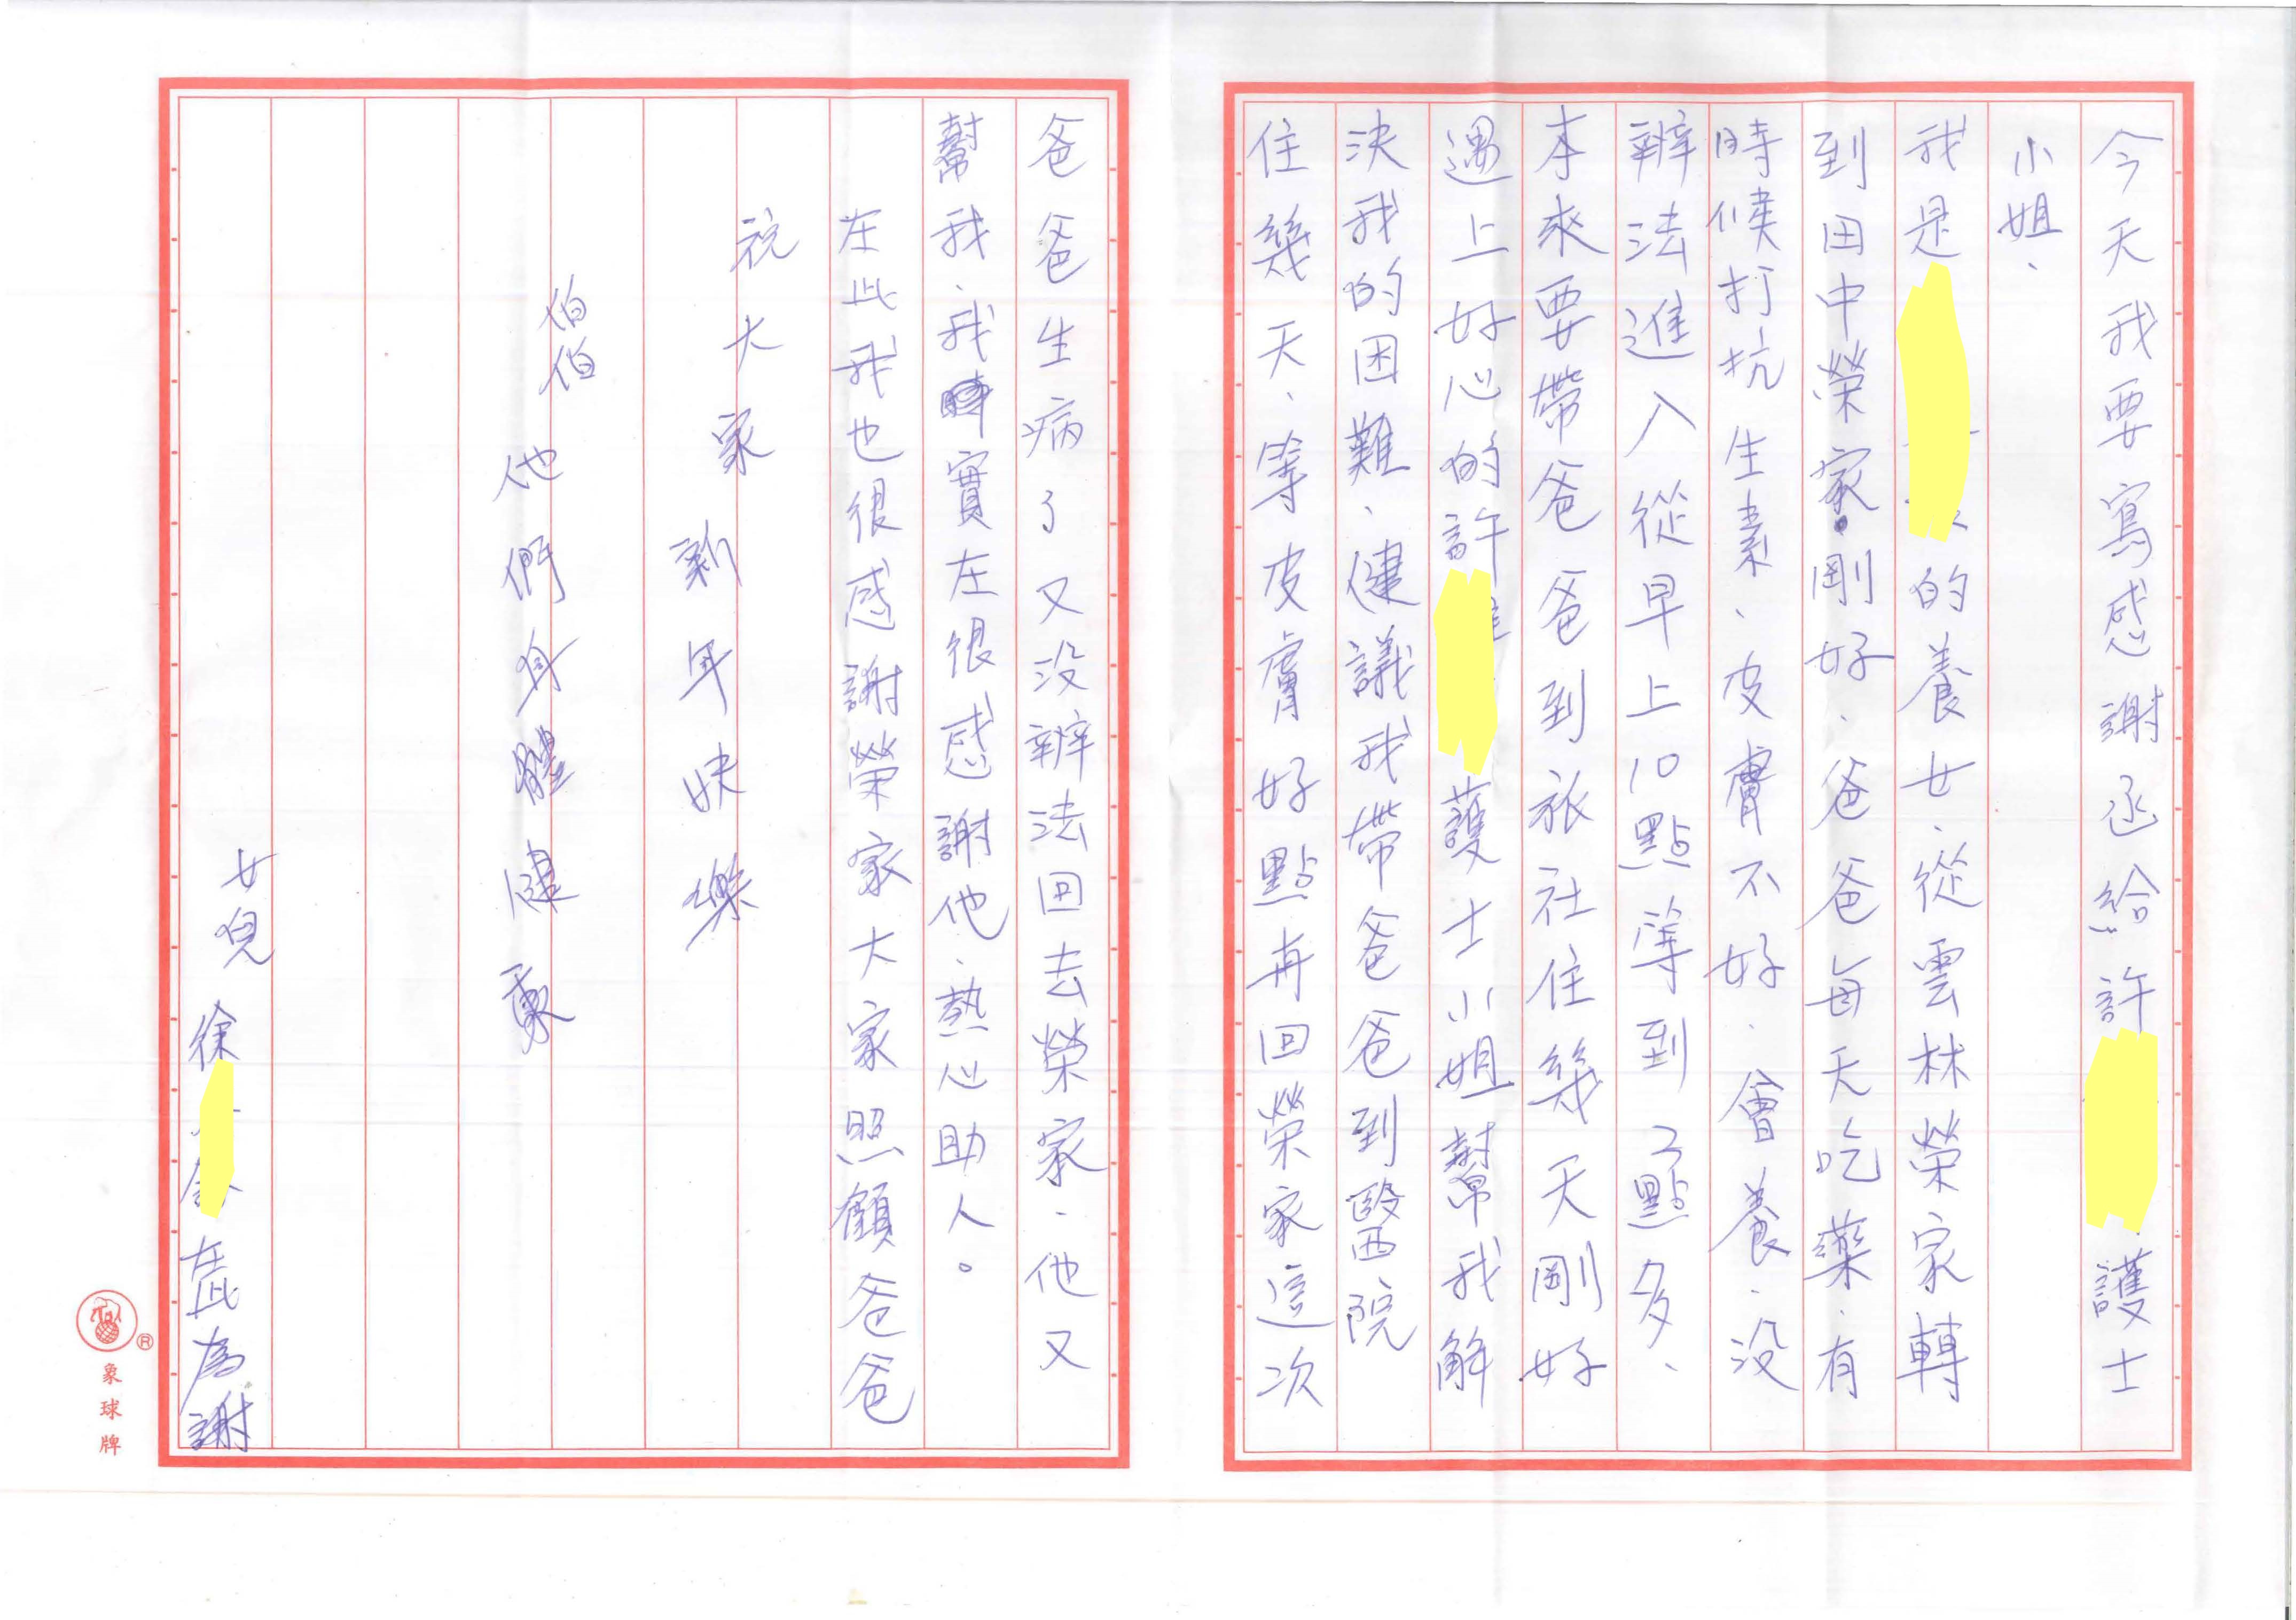 今天我要寫感謝函給許護士
小姐、
我是的養女、從雲林榮家轉
到田中榮家。剛好、爸爸每天吃藥、有
時候打抗生素、皮膚不好、會養、沒
辦法進入從早上10點等到2點多、
本來要帶爸爸到旅社住幾天剛好
遇上好心的許護士小姐幫我解
決我的困難、健議我帶爸爸到醫院
住幾天、等皮膚好點再回榮家這次
爸爸生病了又沒辦法回去榮家、他又
幫我、我實在很感謝他、熱心助人。
在此我也很感謝榮家大家照顧爸爸
祝大家
新年快樂
伯伯
他們身體健康
女兒徐在此為謝
象球牌
®